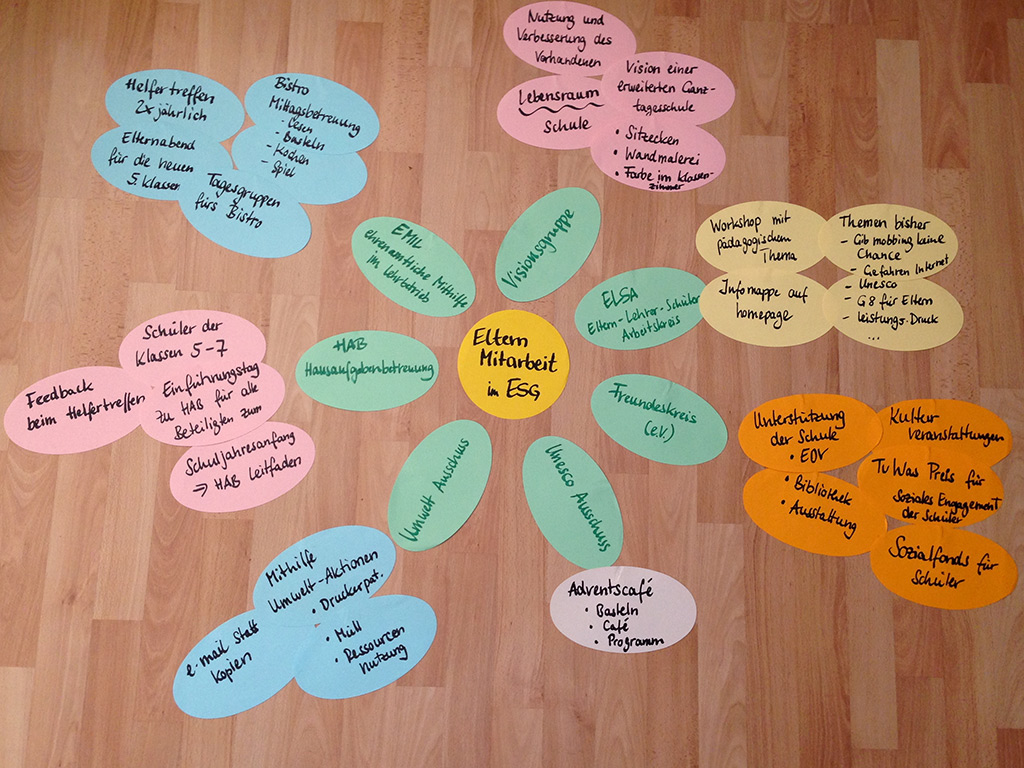 Eltern
Mitarbeit
im ESG
Visionsgruppe
Nutzung und
Verbesserung des
Vorhandenen
Lebensraum
Schule
Vision einer
erweiterten Ganz-
tagesschule
• Sitzecken
• Wandmalerei
• Farbe im Klassen-
zimmer
ELSA
Eltern-Lehrer-Schüler
Arbeitskreis
Workshop mit
pädagogischem
Thema
Infomappe auf
homepage
Themen bisher
- Gib mobbing keine
Chance
- Gefahren Internet
- Unesco
- G8 für Eltern
- Leistungs.Druck
...
Freundeskreis
(e.V.)
Unterstützung
der Schule
• EDV
• Bibliothek
• Ausstattung
Kultur
veranstaltungen
Tu Was Preis für
Soziales Engagement
der Schüler
Sozialfonds für
Schüler
Unesco Ausschuss
Adventscafé
• Basteln
• Café
• Programm
Umwelt Ausschuss
Mithilfe
Umwelt-Aktionen
• Druckerpat.
• Müll
• Ressourcen
nutzung
e-mail statt
kopien
HAB
Hausaufgabenbetreuung
Schüler der
Klassen 5-7
Einführungstag
zu HAB für alle
Beteiligten zum
Schuljahresanfang
⇒ HAB Leitfaden
Feedback
beim Helfertreffen
EMIL
ehrenamtliche Mithilfe
im Lehrbetrieb
Helfertreffen
2x jährlich
Elternabend
für die neuen
5. Klassen
Tagesgruppen
fürs Bistro
Bistro
Mittagsbetreuung
- Lesen
- Basteln
- Kochen
- Spiel